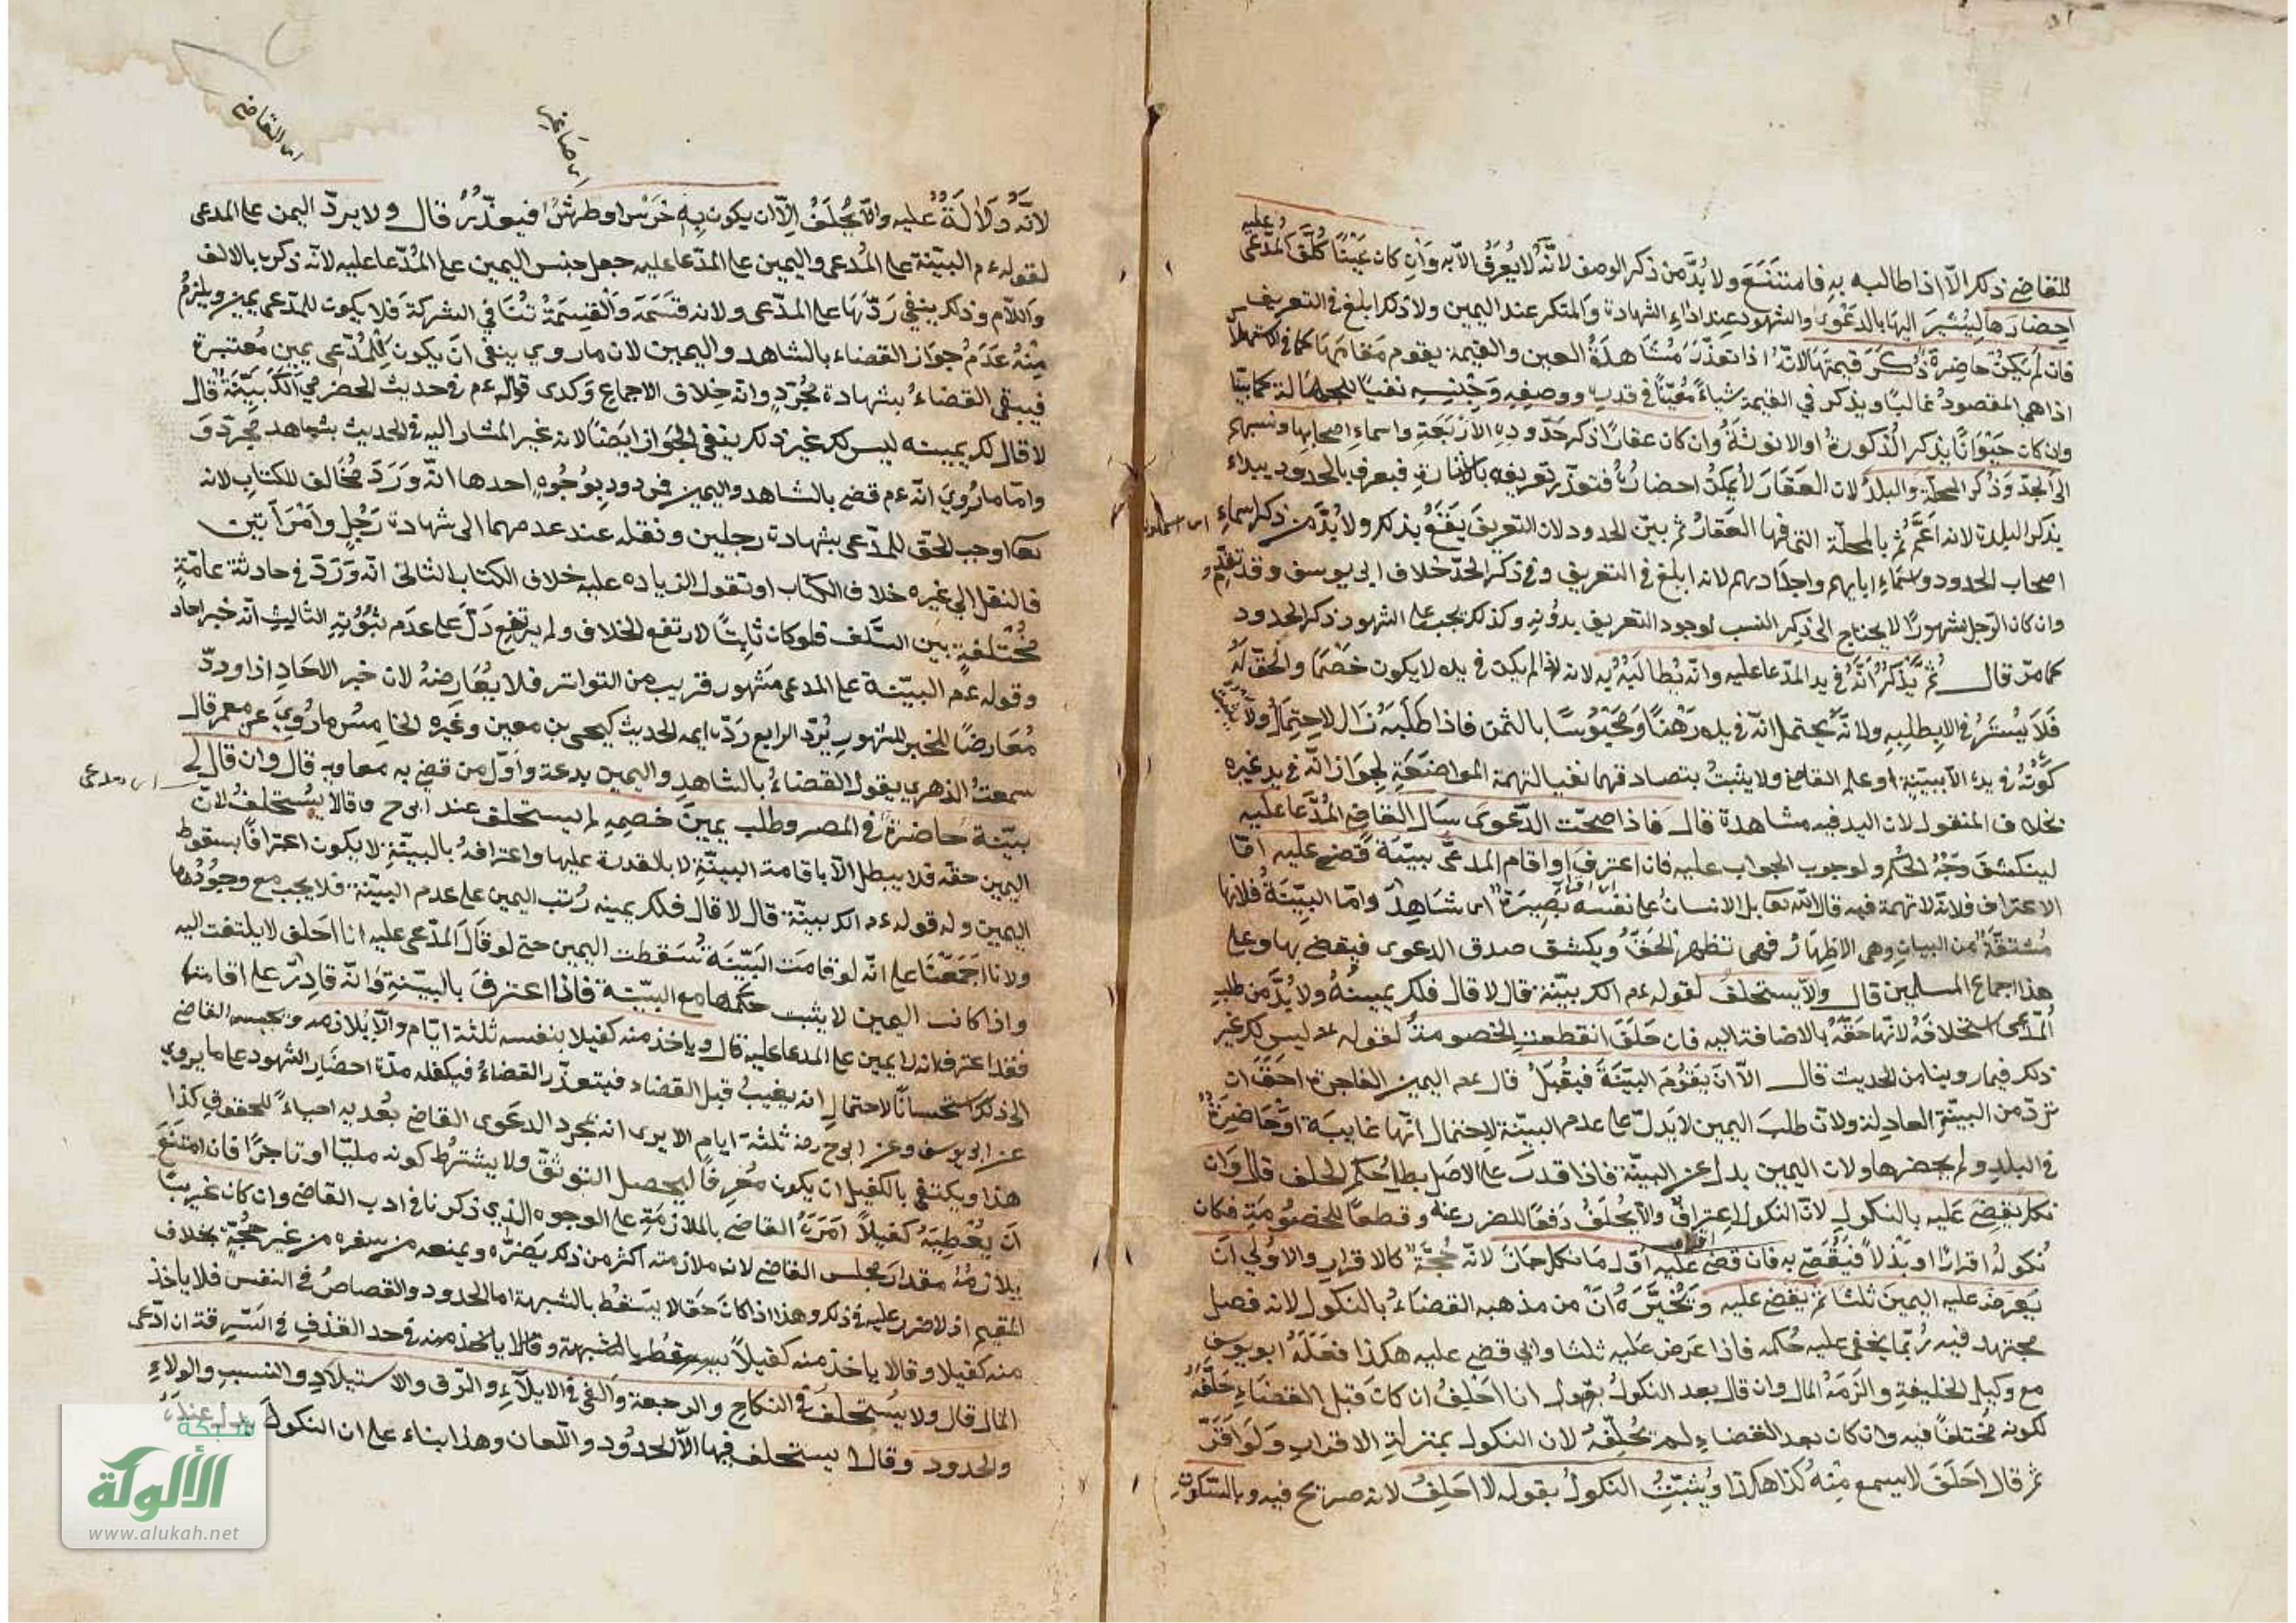 للقاضي ذكر الا اذا طالبه به فامتنع ولا بد من ذكر الوصف لانه لا يعرف الا به وان كان عينا كلف المدعى عليه
احضارها ليشير اليها بالدعوى والشهود عند اداء الشهادة والمنكر عند اليمين ولا ذكر ابلغ في التعريف
فان لم يكن حاضرة ذكر قيمتها لانه اذا تعذر مشاهدة العين والقيمة يقوم مقامها كما في الاستهلاك
اذا هي المقصود غالبا ويذكر في القيمة شياء معينا في قدره ووصفه وجنسه نفيا للجهالة كما بينا
وان كان حيوانا يذكر الذكورة او الانوثة وان كان عقارا ذكر حدوده الاربعة واسماء اصحابها ونسبهم
الى الجد وذكر المحلة والبلد لان العقار لا يمكن احضاره فتعذر تعريفه بالاشارة فيعرف بالحدود يبداء
يذكر البلدة لانه اعم ثم بالمحلة التي فيها العقار ثم يبين الحدود لان التعريف يقع بذلك ولا بد من ذكر اسماء
اصحاب الحدود واسماء ابايهم واجدادهم لانه ابلغ في التعريف وفي ذكر الحد خلاف ابي يوسف وقد تقدم
وان كان الرجل مشهورا لا يحتاج الى ذكر النسب لوجود التعريف بدونه وكذلك يجب على الشهود ذكر الحدود
كما مر قال ثم يذكر انه في يد المدعا عليه وانه يطالبه به لانه اذا لم يكن في يده لا يكون خصما والحق له
فلا يستر في الا بطلبه ولانه يحتمل انه في يده رهنا ومحبوسا بالثمن فاذا طلبه زال الاحتمال ولا يثبت
كونه في يده الا ببينة او علم القاضي ولا يثبت بتصادقهما نفيا لتهمة المواضعة لجواز انه في يد غيره
بخلاف المنقول لان اليد فيه مشاهدة قال فاذا صحت الدعوى سال القاضي المدعا عليه
لينكشف وجه الحكم ولوجوب الجواب عليه فان اعترف او اقام المدعى ببينة قضى عليه اما
الاعتراف فلانه لا تهمة فيه قال الله تعا بل الانسان على نفسه بصيرة اي شاهد واما البينة فلانها
مشتقة من البيان وهي الاظهار فهي تظهر الحق ويكشف صدق الدعوى فيقضى بها وعلى
هذا اجماع المسلمين قال والا يستحلف لقوله عم الك بينة قال لا قال فلك يمينه ولا بد من طلب
المدعى استحلافه لانها حقه بالاضافة اليه فان حلف انقطعت الخصومة لقوله عم ليس لك غير
ذلك فيما روينا من الحديث قال الا ان يقوم البينة فيقبل قال عم اليمين الفاجرة احق ان
ترد من البينة العادلة ولان طلب اليمين لا يدل على عدم البينة لاحتمال انها غايبة او حاضرة
في البلد ولم يحضرها ولان اليمين بدل عن البينة فاذا قدر على الاصل بطل حكم الحلف قال وان
نكل يقضى عليه بالنكول لان النكول اعتراف والا يحلف دفعا للضرر عنه وقطعا للخصومة فكان
نكوله اقرارا او بذلا فيقضى به فان قضى عليه اول ما نكل جاز لانه حجة كالاقرار والاولي ان
يعرض عليه اليمين ثلثا ثم يقضى عليه ويخبره ان من مذهبه القضاء بالنكول لانه فصل
مجتهد فيه ربما يخفى عليه حكمه فاذا عرض عليه ثلثا وابي قضى عليه هكذا فعله ابو يوسف
مع وكيل الخليفة والزمه المال وان قال بعد النكول بقول انا احلف ان كان قبل القضاء حلفه
لكونه مختلفا فيه وان كان بعد القضاء لم يحلفه لان النكول بمنزلة الاقرار ولو اقر
ثم قال احلف لا يسمع منه كذا هكذا ويثبت النكول بقوله لا احلف لانه صريح فيه وبالسكوت
اى القاضي
لانه دلالة عليه وانما يحلف الا ان يكون به خرس او طرش فيعذر قال ولا يرد اليمين على المدعى
لقوله عم البينة على المدعى واليمين على المدعا عليه جعل جنس اليمين على المدعا عليه لانه ذكره بالالف
واللام وذلك ينفي ردها على المدعى ولانه قسمه والقسمة تنافي الشركة فلا يكون للمدعى يمين ويلزم
منه عدم جواز القضاء بالشاهد واليمين لان ما روي ينفي ان يكون للمدعى يمين معتبرة
فيبقى القضاء بشهادة مجرد وانه خلاف الاجماع وكدى قوله عم في حديث الحضرمي الك بينة قال
لا قال لك يمينه ليس لك غير ذلك ينفي الجواز ايضا لانه غير المشار اليه في الحديث بشاهد مجرد و
واما ما روي انه عم قضى بالشاهد واليمين فمردود بوجوه احدها انه ورد مخالف للكتاب لانه
تعا اوجب الحق للمدعى بشهادة رجلين ونقله عند عدمهما الى شهادة رجل وامراتين
فالنقل الي غيره خلاف الكتاب او نقول الزياده عليه خلاف الكتاب الثاني انه ورد في حادثة عامة
مختلفة بين السلف فلو كان ثابتا لارتفع الخلاف ولم يرتفع دل على عدم ثبوته الثالث انه خبر احاد
وقوله عم البينة على المدعى مشهور قريب من التواتر فلا يعارضه لان خبر الاحاد اذا ورد
معارضا للخبر المشهور يرد الرابع رده ايمة الحديث كيحيى بن معين وغيره الخامس ما روي عن معمر قال
سمعت الزهري يقول القضاء بالشاهد واليمين بدعة واول من قضى به معاويه قال وان قال لي
بينة حاضرة في المصر وطلب يمين خصمه لم يستحلف عند ابي ح وقالا يستحلف لان
اليمين حقه فلا يبطل الا باقامة البينة لا بالقدرة عليها واعترافه بالبينة لا يكون اعترافا بسقوط
اليمين وله قوله عم الك بينة قال لا قال فلك يمينه رتب اليمين على عدم البينة فلا يجب مع وجودها
ولانا اجمعنا على انه لو قامت البينة سقطت اليمين حتى لو قال المدعى عليه انا احلف لا يلتفت اليه
واذا كانت اليمين لا يثبت حكمها مع البينة فاذا اعترف بالبينة وانه قادر على اقامتها
فقد اعترف انه لا يمين على المدعا عليه قال وياخذ منه كفيلا بنفسه ثلثة ايام والا يلازمه ويحبسه القاضي
الى ذلك استحسانا لاحتمال انه يغيب قبل القضاء فيتعذر القضاء فيكفله مدة احضار الشهود على ما يروي
عن ابي يوسف وعن ابي ح رضه ثلثة ايام الا يرى انه بمجرد الدعوى القاضي يعديه احياء للحقوق كذا
هذا ويكتفى بالكفيل ان يكون معرفا ليحصل التوثق ولا يشترط كونه مليا او تاجرا فان امتنع
ان يعطيه كفيلا امره القاضي بالملازمة على الوجوه الذي ذكرنا في ادب القاضي وان كان غريبا
يلازمه مقدار مجلس القاضي لان ملازمته اكثر من ذلك يضره ويمنعه من سفره من غير حجة بخلاف
المقيم اذ لا ضرر عليه في ذلك وهذا اذا كان حقا لا يسقط بالشبهة اما الحدود والقصاص في النفس فلا ياخذ
منه كفيلا وقالا ياخذ منه كفيلا بالشبهة وقالا ياخذ منه في حد القذف في السرقة ان ادعى
المال قال ولا يستحلف في النكاح والرجعة والفي في الايلاء والرق والاستيلاد والنسب والولاء
والحدود وقالا يستحلف فيها الا الحدود واللعان وهذا بناء على ان النكول بذل عنده
شبكة
الألوكة
www.alukah.net